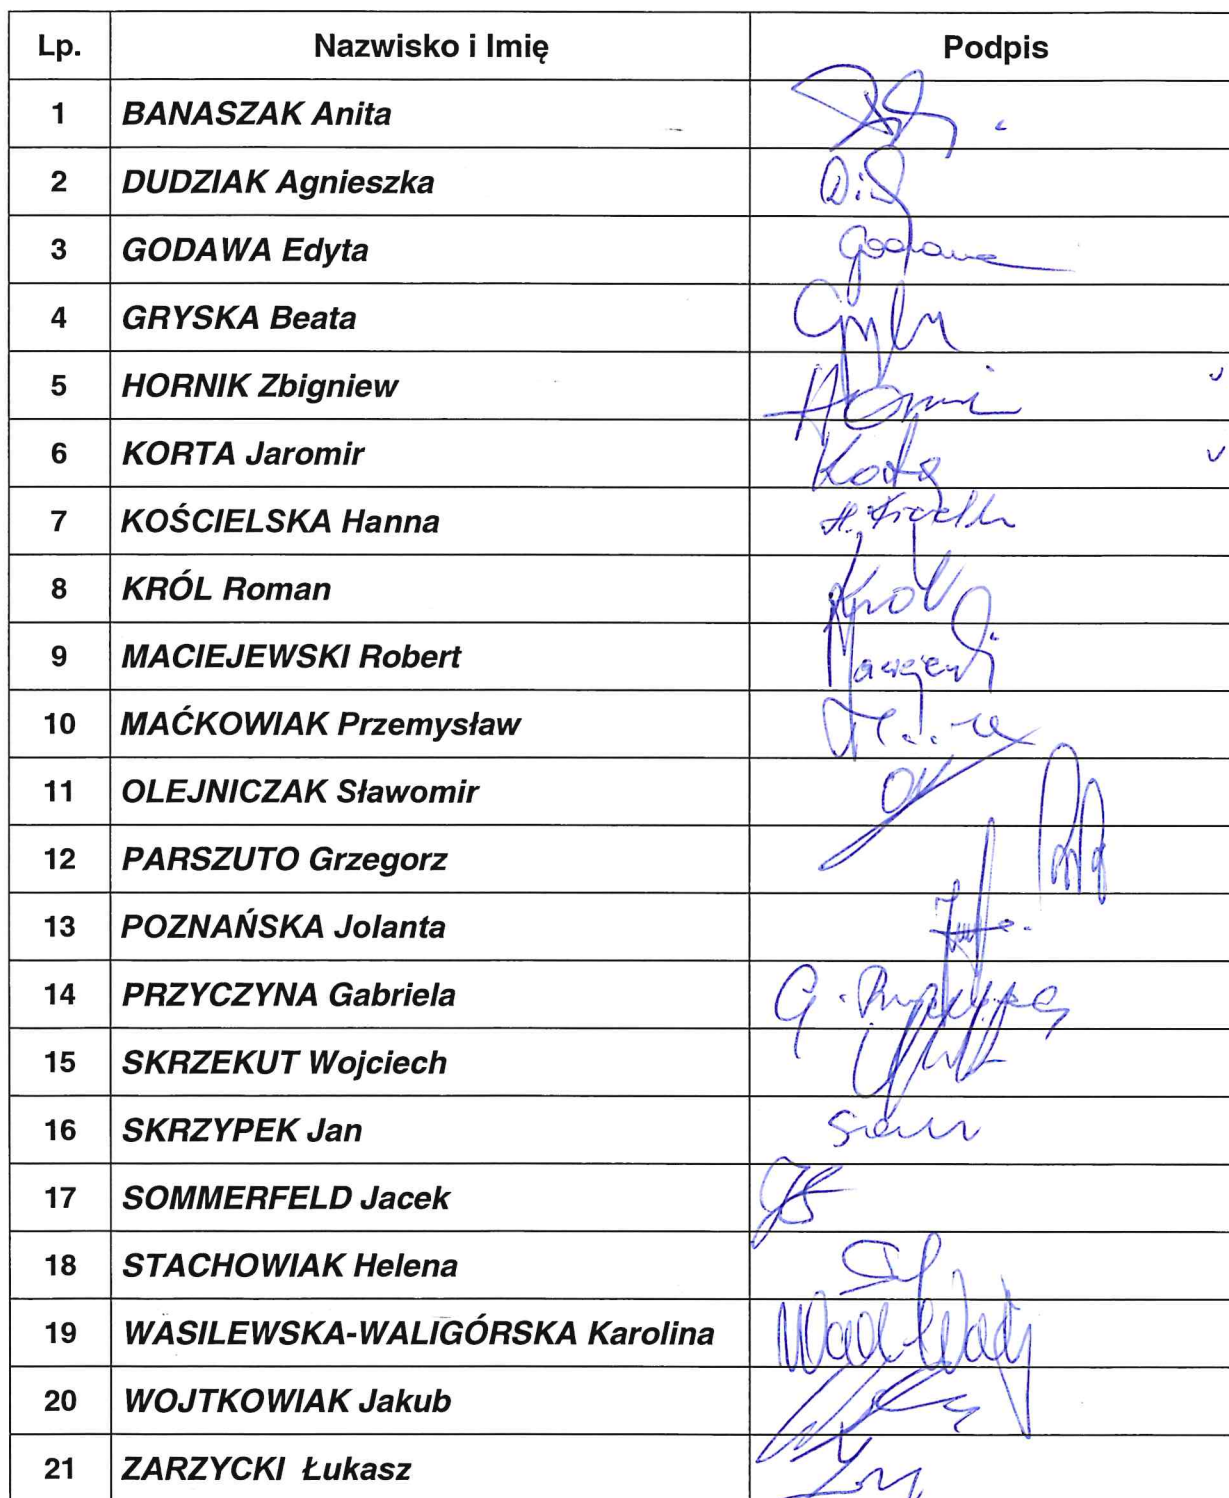 Lp. Nazwisko i Imię Podpis
1 BANASZAK Anita
2 DUDZIAK Agnieszka
3 GODAWA Edyta Godawa
4 GRYSKA Beata
5 HORNIK Zbigniew
6 KORTA Jaromir Korta
7 KOŚCIELSKA Hanna
8 KRÓL Roman Król
9 MACIEJEWSKI Robert
10 MAĆKOWIAK Przemysław
11 OLEJNICZAK Sławomir
12 PARSZUTO Grzegorz
13 POZNAŃSKA Jolanta
14 PRZYCZYNA Gabriela
15 SKRZEKUT Wojciech
16 SKRZYPEK Jan
17 SOMMERFELD Jacek
18 STACHOWIAK Helena
19 WASILEWSKA-WALIGÓRSKA Karolina
20 WOJTKOWIAK Jakub
21 ZARZYCKI Łukasz